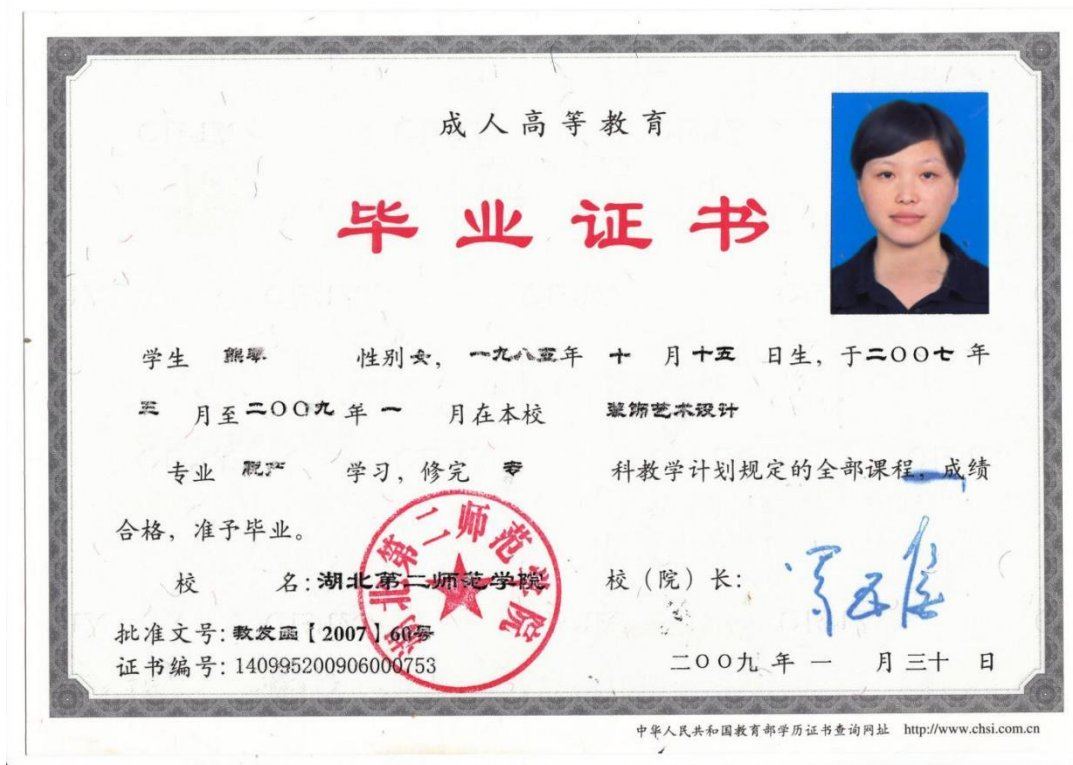 成人高等教育
毕业证书
学生 熊翠 性别女, 一九八五年 十 月十五 日生, 于二〇〇七 年
三 月至二〇〇九 年 一 月在本校 装饰艺术设计
专业 脱产 学习, 修完 专 科教学计划规定的全部课程, 成绩
合格, 准予毕业。
校 名: 湖北第二师范学院 校(院)长:
批准文号: 教发函【2007】60号
证书编号: 140995200906000753 二〇〇九 年 一 月 三十 日
湖北第二师范学院
中华人民共和国教育部学历证书查询网址 http://www.chsi.com.cn